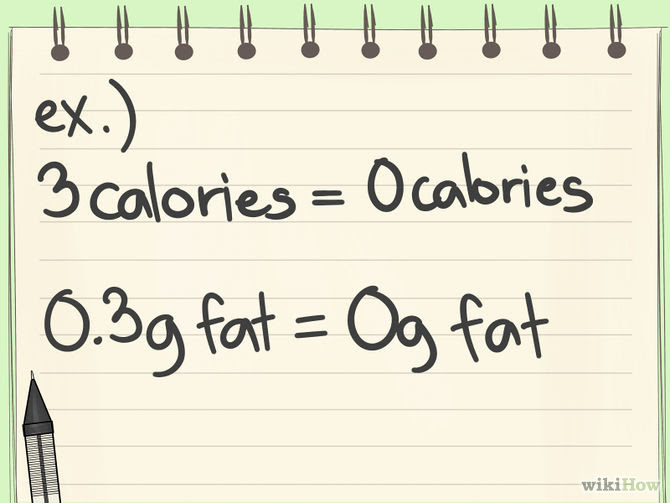 ex.)
3 calories = 0 calories
0.3g fat = 0g fat
wikiHow